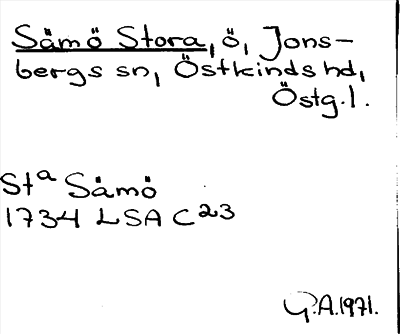 Såmö Stora, ö, Jons-
bergs sn, Östkinds hd,
Östg. l.
Sta Såmö
1734 LSA C23
G.A. 1971.